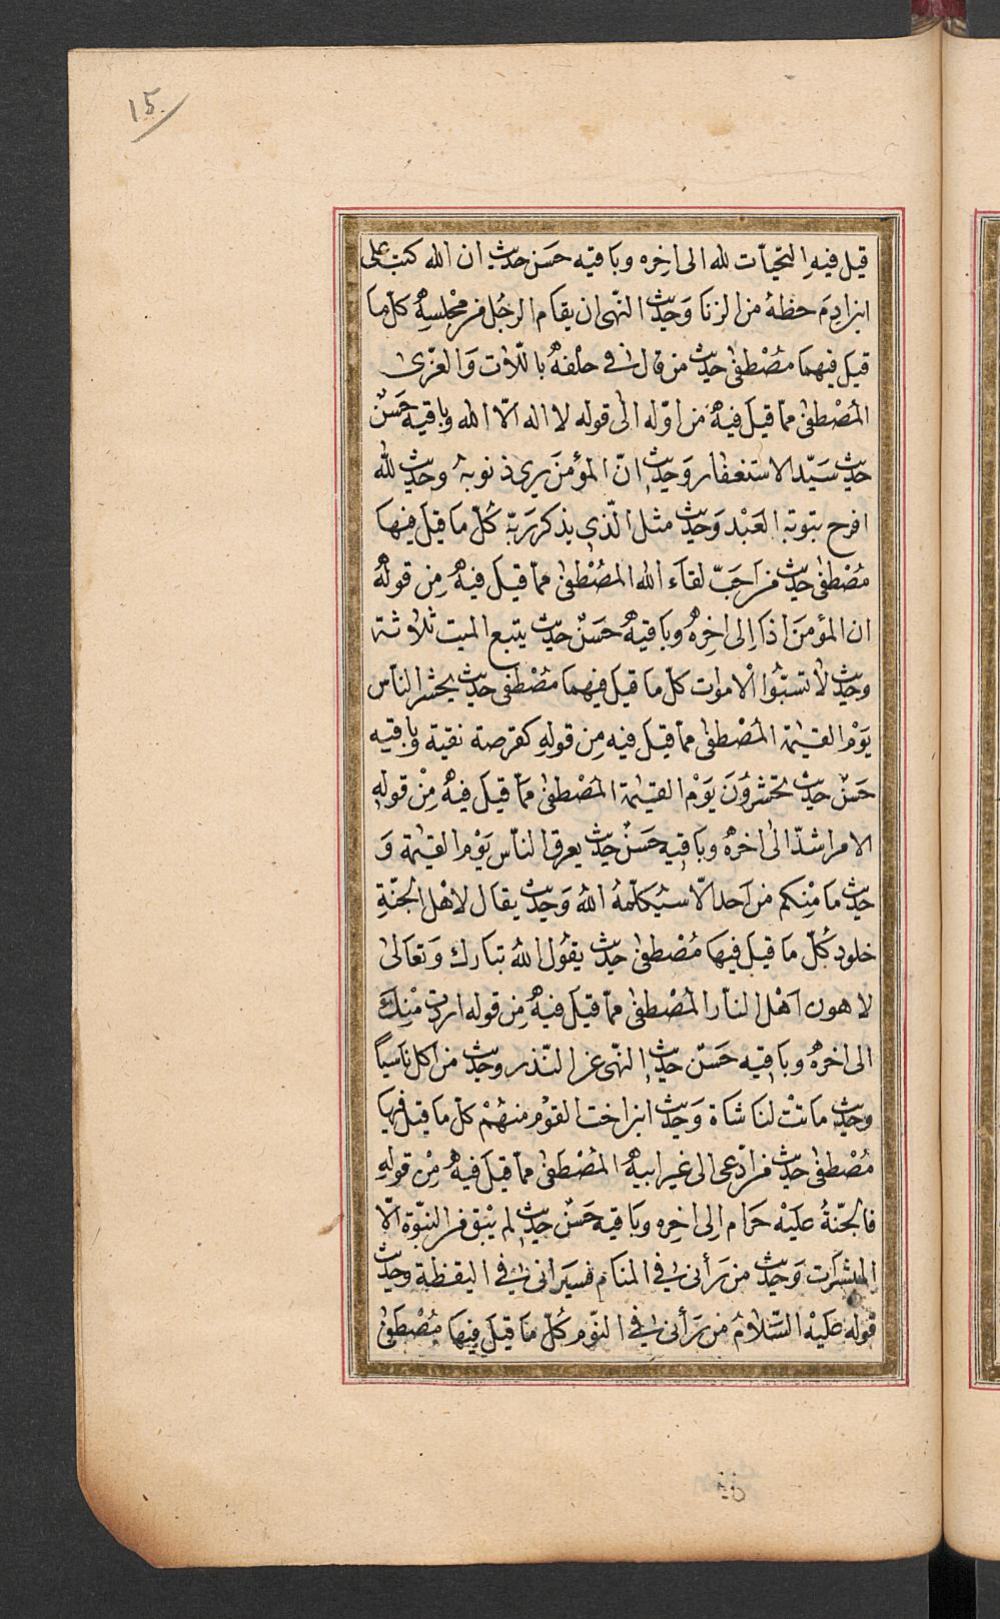 15
قيل فيهِ التحيّات لله الى اخِره وبَاقيه حَسَن حديث ان الله كتب على
ابن ادِمَ حظهُ من الزنا وَحديث النّهى ان يقام الرجُل من مجْلسِهُ كلّ ما
قيل فيهما مصْطفىٰ حديث من قال في حلفهُ باللّات وَالعزّى
المصْطفىٰ ممّا قيلَ فيهُ من اوّله الى قوله لا اله الّا الله وباقيه حَسَن
حديث سَيّد الاستغفار وَحديث انّ المؤمنَ يرى ذنوبهُ وحديث لله
افرح بتوبة العَبْد وَحديث مثل الّذى يذكر رَبّه كُلّ ما قيل فيها
مصْطفىٰ حديث من احَبّ لقاء الله المصْطفىٰ ممّا قيلَ فيهُ مِن قولهُ
ان المؤمنَ اذا اِلى اخِرهُ وبَاقيهُ حسَنٌ حديث يتبع الميت ثلاثة
وحديث لا تسبّوا الاموات كلّ ما قيلَ فيهما مصْطفىٰ حديث يحشر الناس
يَوْم القيٰمة المصْطفىٰ ممّا قيلَ فيه مِن قولهِ كقرصة نقية وباقيه
حَسنٌ حديث تحشرُونَ يَوْم القيٰمة المصْطفىٰ ممّا قيلَ فيهُ مِنْ قولهِ
الامر اشدّ الى اخرهُ وبَاقيه حَسَنٌ حديث يعرق الناس يَوْم القيٰمة وَ
حديث مَا مِنكم من اَحد الّا سَيُكلّمهُ اللهُ وَحديث يقال لاهْل الجنّةِ
خلود كُلّ مَا قيلَ فيهَا مصْطفىٰ حديث يقُول اللهُ تبارك وَتعَالىٰ
لاهون اَهْل النار المصْطفىٰ ممّا قيلَ فيهُ مِن قوله اردت مِنكَ
الى اخرهُ وبَاقيه حَسَنٌ حديث النّهى عن النّذر وحديث من اكل ناسياً
وحديث ماتتْ لنا شاة وَحديث ابن اخت القوْم منهُمْ كلّ ما قيل فيها
مصْطفىٰ حديث من ادّعى الى غير ابيهُ المصْطفىٰ ممّا قيلَ فيهُ مِنْ قولهِ
فالجنّةُ عليْه حَرَام اِلى اخِره وبَاقيه حَسَنٌ حديث لم يبْق من النبوّة الّا
المبشرَات وَحديث من رَأنى في المنَام فسيَرانى في اليقظة وحديث
قوله عليْه السّلامُ من رَأنى في النوْم كُلّ مَا قيلَ فيهَا مصْطفىٰ